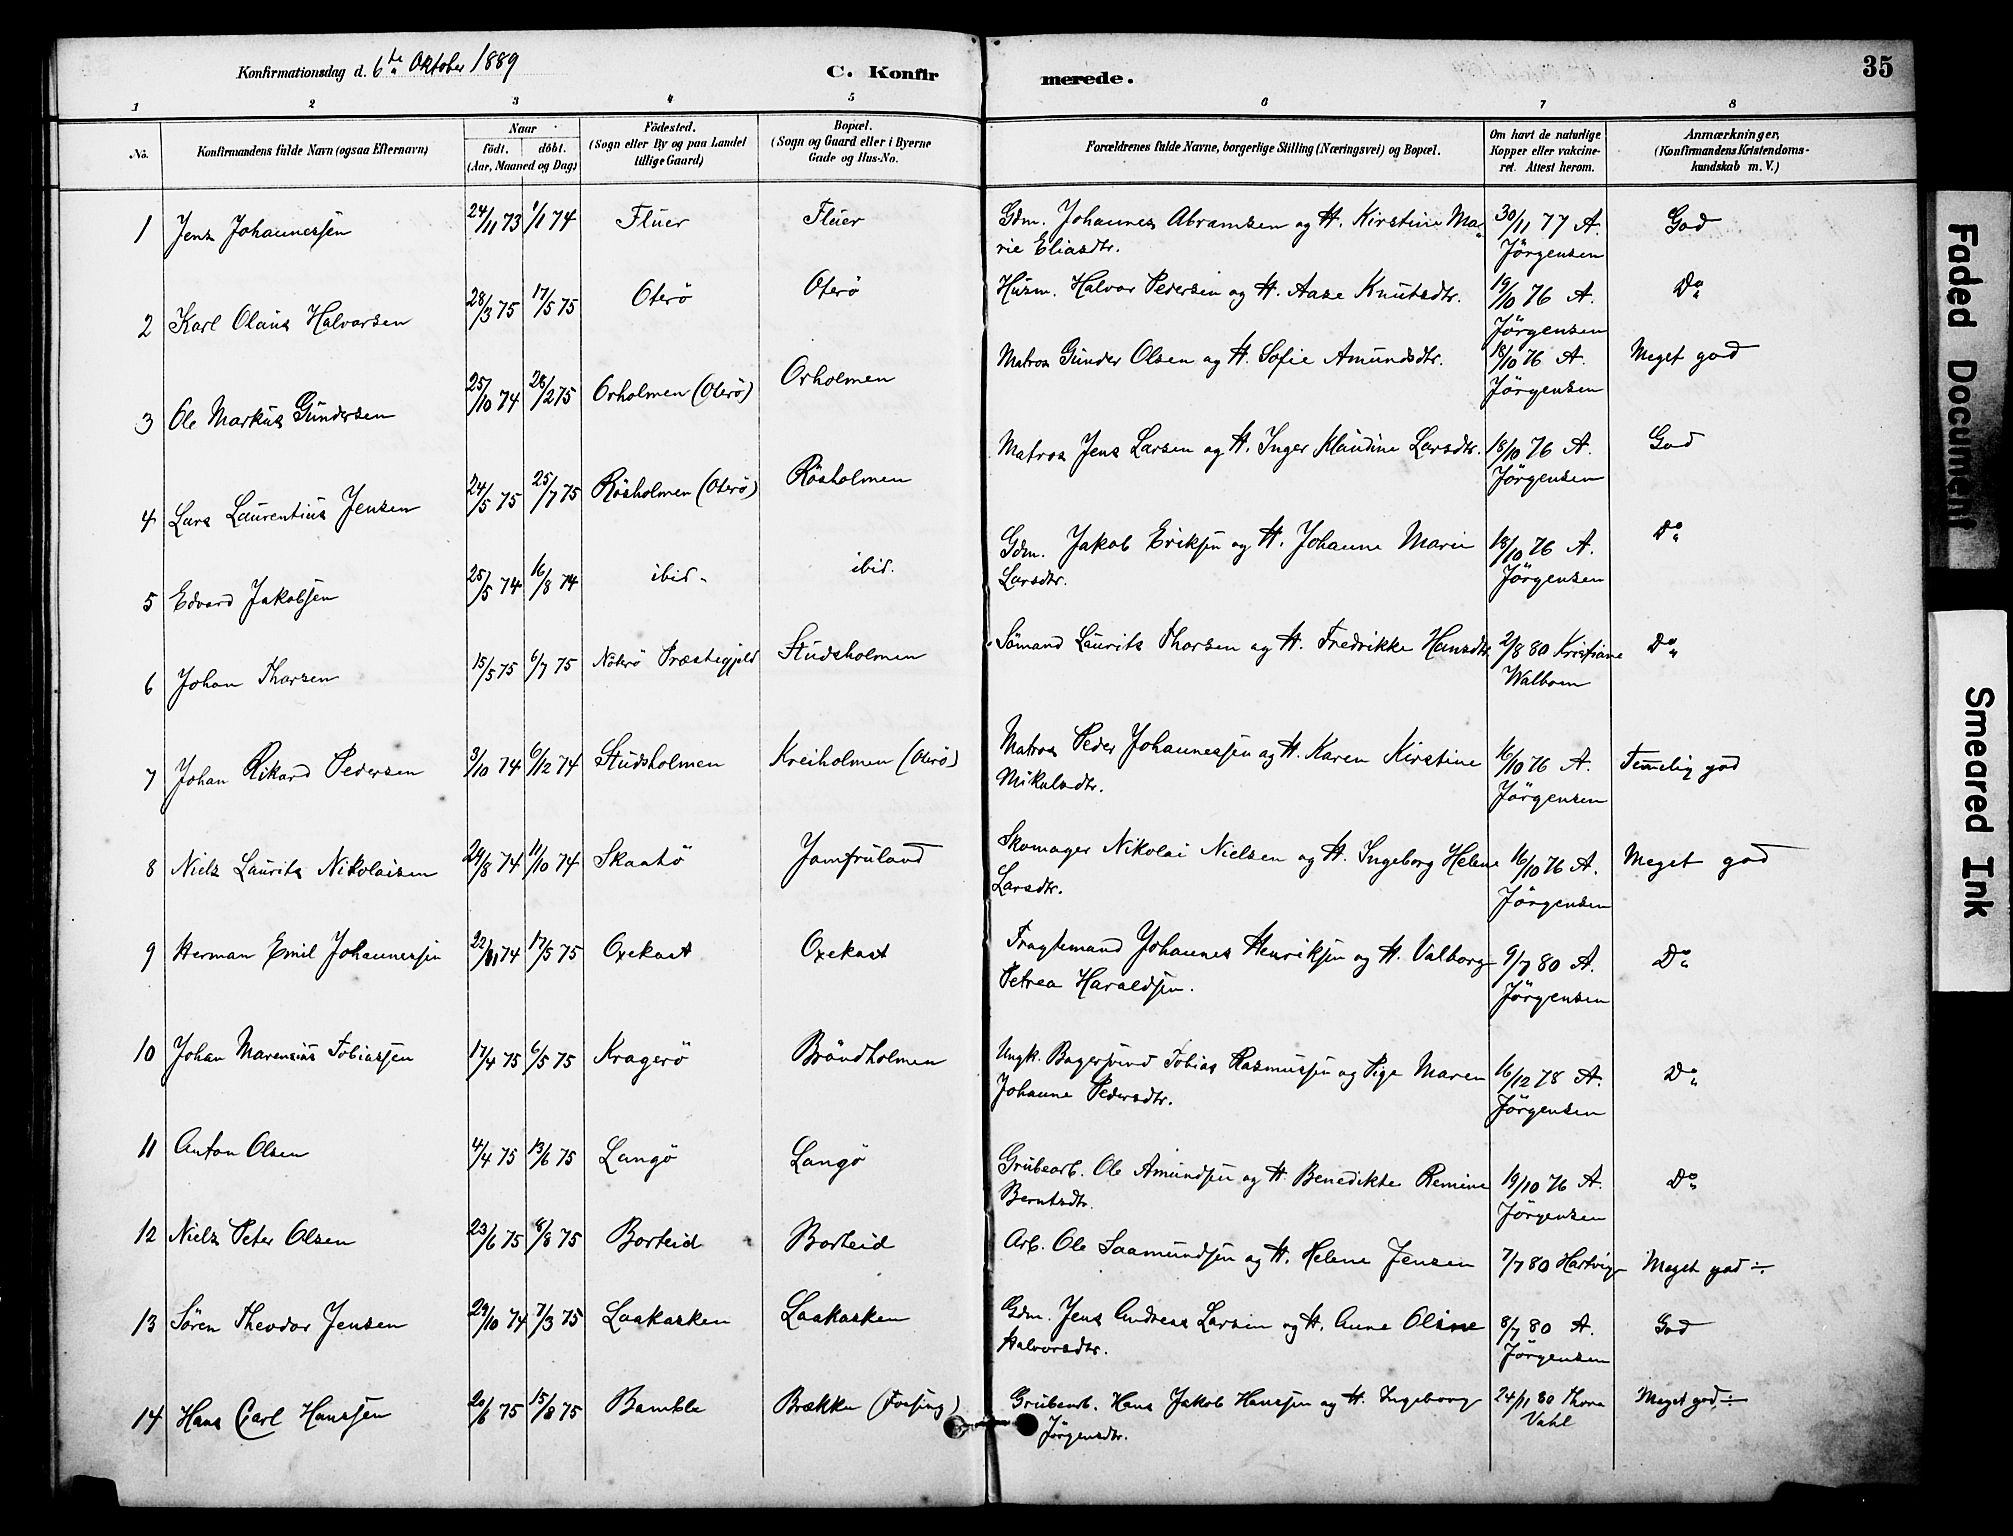 Konfirmationsdag d. 6te Oktober 1889
C. Konfirmerede.
35
1 2 3 4 5 6 7 8
No.
Konfirmandens fulde Navn (ogsaa Efternavn)
Naar
födt. döbt.
(Aar, Maaned og Dag)
Födested.
(Sogn eller By og paa Landet
tillige Gaard)
Bopæl.
(Sogn og Gaard eller i Byerne
Gade og Hus-No.
Forældrenes fulde Navne, borgerlige Stilling (Næringsvei) og Bopæl.
Om havt de naturlige
Kopper eller vakcine-
ret. Attest herom.
Anmærkninger,
(Konfirmandens Kristendoms-
kundskab m. V.)
1 Jens Johannessen 24/11 73 1/1 74 Fluer Fluer Gdm. Johannes Abramsen og H. Kirstine Ma- 30/11 77 A. God
rie Eliasdtr. Jörgensen
2 Karl Olaus Halvorsen 28/3 75 17/5 75 Oterö Oterö Husm. Halvor Pedersen og H. Aase Knutsdtr. 19/10 76 A. Do
Jörgensen
3 Ole Markus Gundersen 25/10 74 28/2 75 Orholmen (Oterö) Orholmen Matros Gunder Olsen og H. Sofie Amundsdtr. 18/10 76 A. Meget god
Jörgensen
4 Lars Laurentius Jensen 24/5 75 25/7 75 Rösholmen (Oterö) Rösholmen Matros Jens Larsen og H. Inger Klaudine Larsdtr. 18/10 76 A. God
Jörgensen
5 Edvard Jakobsen 25/5 74 16/8 74 ibid. ibid. Gdm. Jakob Eriksen og H. Johanne Marie 18/10 76 A. Do
Larsdtr. Jörgensen
6 Johan Thorsen 15/5 75 6/7 75 Nöterö Præstegjeld Studsholmen Sömand Laurits Thorsen og H. Fredrikke Hansdtr. 2/8 80 Kristiane Do
Walbom
7 Johan Rikard Pedersen 3/10 74 6/12 74 Studsholmen Kreiholmen (Oterö) Matros Peder Johannessen og H. Karen Kirstine 16/10 76 A. Temelig god
Mikalsdtr. Jörgensen
8 Niels Laurits Nikolaisen 29/8 74 11/10 74 Skaatö Jomfruland Skomager Nikolai Nielsen og H. Ingeborg Helene 16/10 76 A. Meget god
Larsdtr. Jörgensen
9 Herman Emil Johannessen 22/11 74 17/5 75 Oxekast Oxekast Fragtemand Johannes Henriksen og H. Valborg 9/7 80 A. Do
Petrea Haraldsen. Jörgensen
10 Johan Marensius Tobiassen 17/4 75 6/5 75 Kragerö Bröndholmen Ungk. Bagersvend Tobias Rasmussen og Pige Maren 16/12 78 A. Do
Johanne Pedersdtr. Jörgensen
11 Anton Olsen 4/4 75 13/6 75 Langö Langö Grubearb. Ole Amundsen og H. Benedikte Remine 19/10 76 A. Do
Berntsdtr. Jörgensen
12 Niels Peter Olsen 23/6 75 8/8 75 Borteid Borteid Arb. Ole Saamundsen og H. Helene Jensen 7/7 80 Hartvig Meget god ÷
13 Sören Theodor Jensen 29/10 74 7/3 75 Laakasken Laakasken Gdm. Jens Andreas Larsen og H. Anne Olsine 8/7 80 A. God
Halvorsdtr. Jörgensen
14 Hans Carl Hanssen 20/6 75 15/8 75 Bamble Brække (Fossing) Grubearb. Hans Jakob Hanssen og H. Ingeborg 24/11 80 Thora Meget god ÷
Jörgensdtr. Vahl
Faded Document
Smeared Ink